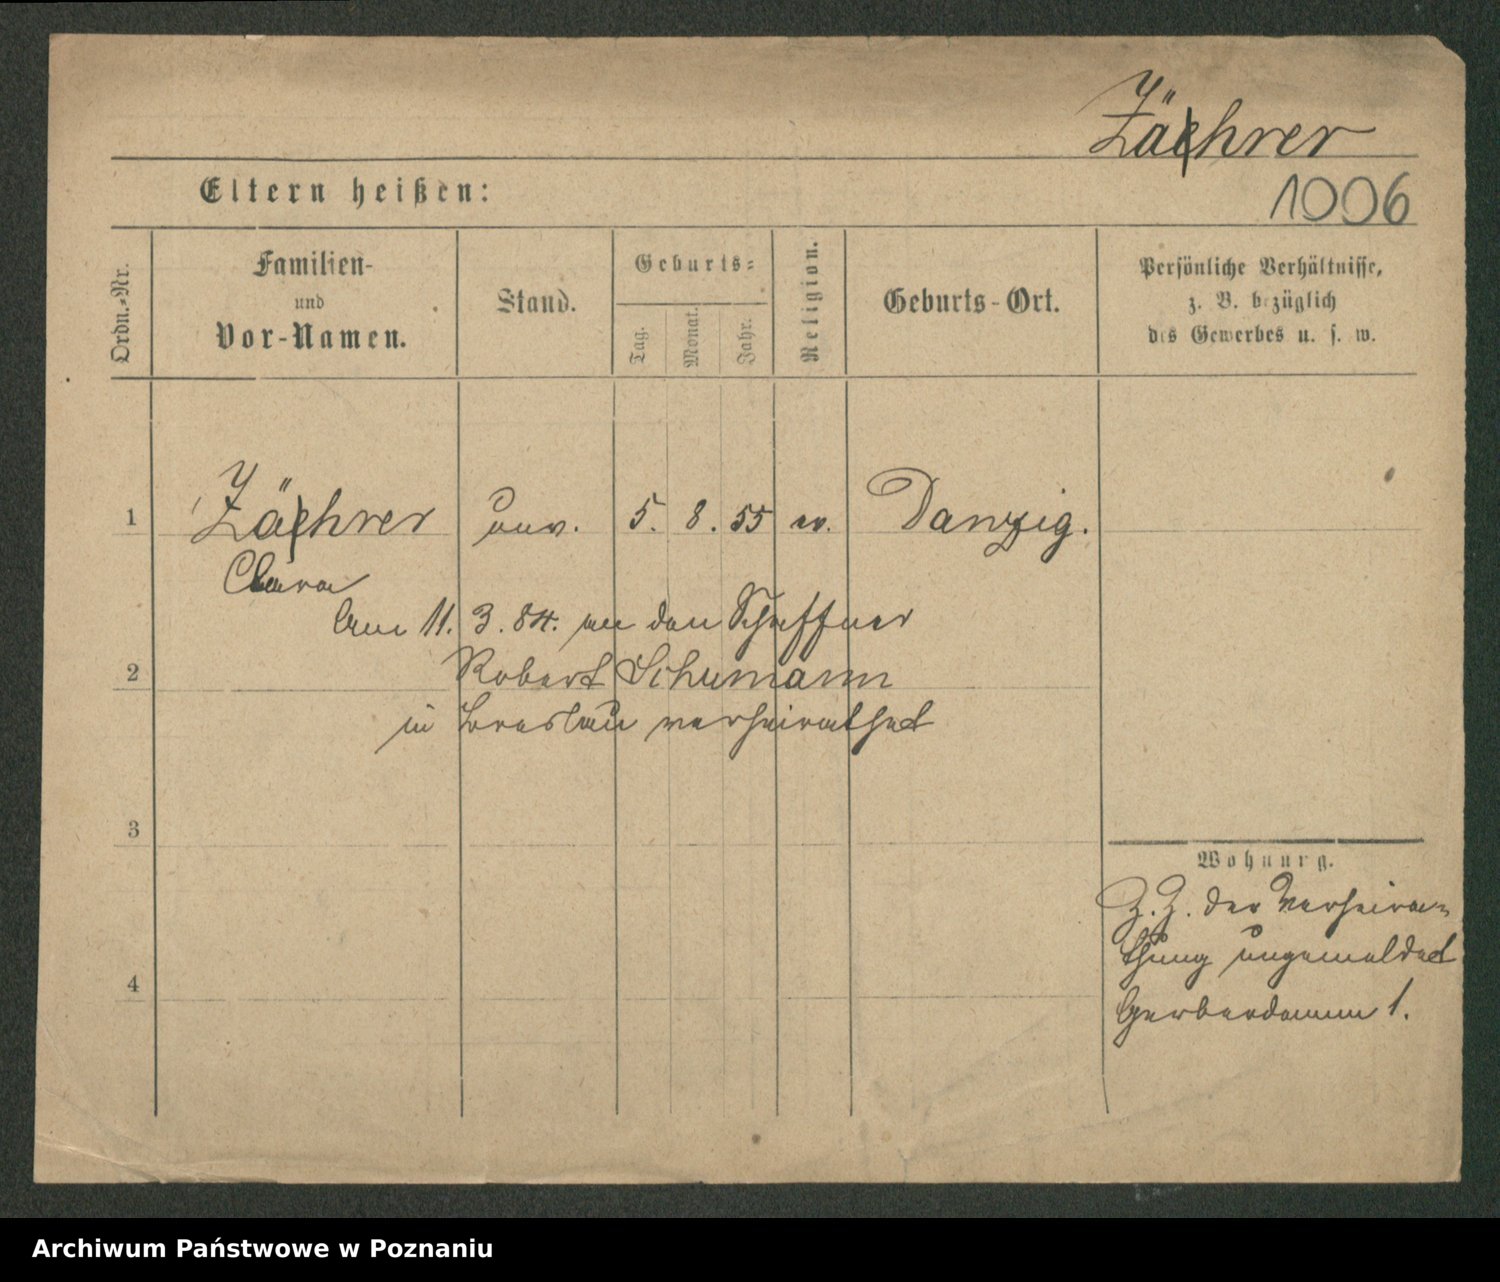 Zährer
1006
Eltern heißen:
Ordn.-Nr.
Familien-
und
Vor-Namen.
Stand.
Geburts-
Tag.
Monat.
Jahr.
Religion.
Geburts-Ort.
Persönliche Verhältnisse,
z. B. bezüglich
des Gewerbes u. s. w.
1 Zährer unv. 5. 8. 55 ev. Danzig.
Clara
Am 11. 3. 84. an den Schaffner
2 Robert Schumann
in Breslau verheirathet
3
Wohnung.
Z. Z. der Verheira-
thung ungemeldet
4
Gerberdamm 1.
Archiwum Państwowe w Poznaniu